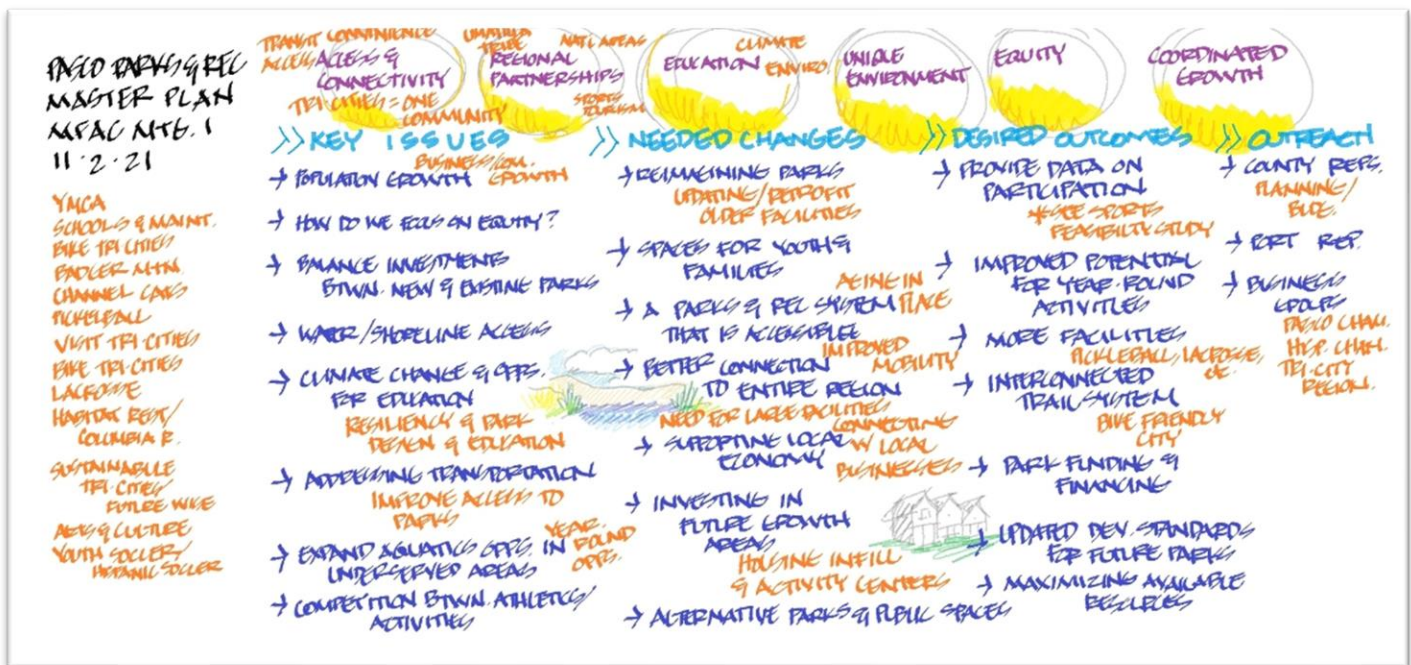 PASCO PARKS & REC
MASTER PLAN
MFAC MTG. 1
11·2·21
YMCA
SCHOOLS & MAINT.
BIKE TRI CITIES
BADGER MTN.
CHANNEL CATS
PICKLEBALL
VISIT TRI-CITIES
BIKE TRI-CITIES
LACROSSE
HABITAT REST/
COLUMBIA R.
SUSTAINABLE
TRI-CITIES/
FUTURE WISE
ARTS & CULTURE
YOUTH SOCCER/
HISPANIC SOCCER
TRANSIT CONVENIENCE
ACCESS
ACCESS &
CONNECTIVITY
TRI-CITIES = ONE
COMMUNITY
UMATILLA
TRIBE
NAT'L AREAS
REGIONAL
PARTNERSHIPS
SPORTS
TOURISM
EDUCATION
CLIMATE
ENVIRO.
UNIQUE
ENVIRONMENT
EQUITY
COORDINATED
GROWTH
>> KEY ISSUES
→ POPULATION GROWTH
BUSINESS/COM.
GROWTH
→ HOW DO WE FOCUS ON EQUITY?
→ BALANCE INVESTMENTS
BTWN. NEW & EXISTING PARKS
→ WATER/SHORELINE ACCESS
→ CLIMATE CHANGE & OPPS.
FOR EDUCATION
RESILIENCY & PARK
DESIGN & EDUCATION
→ ADDRESSING TRANSPORTATION
IMPROVE ACCESS TO
PARKS
→ EXPAND AQUATICS OPPS. IN
UNDERSERVED AREAS
YEAR-
ROUND
OPPS.
→ COMPETITION BTWN. ATHLETICS/
ACTIVITIES
>> NEEDED CHANGES
→ REIMAGINING PARKS
UPDATING/RETROFIT
OLDER FACILITIES
→ SPACES FOR YOUTH &
FAMILIES
→ A PARKS & REC SYSTEM
THAT IS ACCESSIBLE
AGING IN
PLACE
→ BETTER CONNECTION
TO ENTIRE REGION
IMPROVED
MOBILITY
NEED FOR LARGE FACILITIES
→ SUPPORTING LOCAL
ECONOMY
CONNECTING
W/ LOCAL
BUSINESSES
→ INVESTING IN
FUTURE GROWTH
AREAS
HOUSING INFILL
& ACTIVITY CENTERS
→ ALTERNATIVE PARKS & PUBLIC SPACES
>> DESIRED OUTCOMES
→ PROVIDE DATA ON
PARTICIPATION
*SEE SPORTS
FEASIBILTY STUDY
→ IMPROVED POTENTIAL
FOR YEAR-ROUND
ACTIVITIES
→ MORE FACILITIES
PICKLEBALL, LACROSSE,
→ INTERCONNECTED
TRAIL SYSTEM
BIKE FRIENDLY
CITY
→ PARK FUNDING &
FINANCING
→ UPDATED DEV. STANDARDS
FOR FUTURE PARKS
→ MAXIMIZING AVAILABLE
RESOURCES
>> OUTREACH
→ COUNTY REPS.
PLANNING/
BLDG.
→ PORT REP.
→ BUSINESS
GROUPS
PASCO CHAM.
HISP. CHAM.
TRI-CITY
REGION.